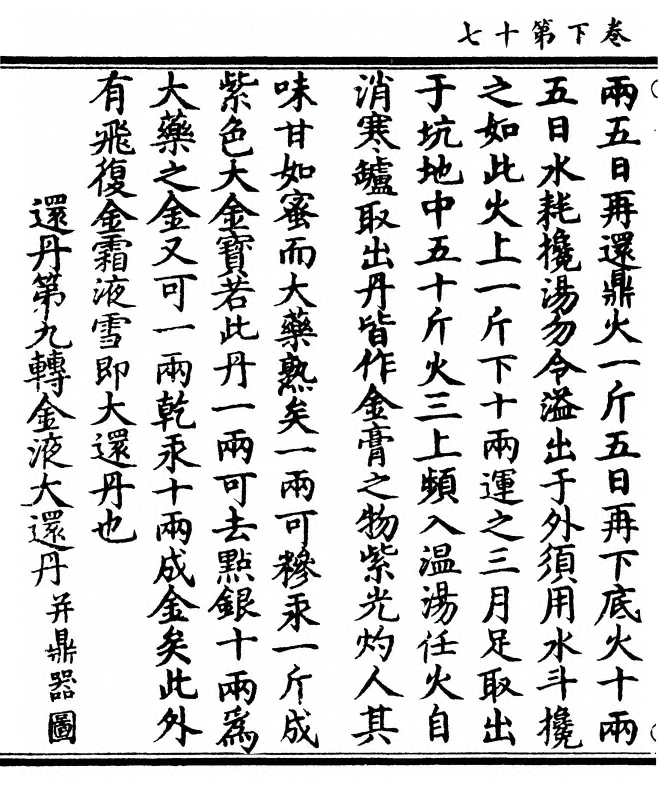 卷下第十七
兩五日再還鼎火一斤五日再下底火十兩
五日水耗攙湯勿令溢出于外須用水斗攙
之如此火上一斤下十兩運之三月足取出
于坑地中五十斤火三上頻入温湯任火自
消寒鑪取出丹皆作金膏之物紫光灼人其
味甘如蜜而大藥熟矣一兩可糝汞一斤成
紫色大金寶若此丹一兩可去點銀十兩爲
大藥之金又可一兩乾汞十兩成金矣此外
有飛復金霜液雪即大還丹也
還丹第九轉金液大還丹并鼎器圖